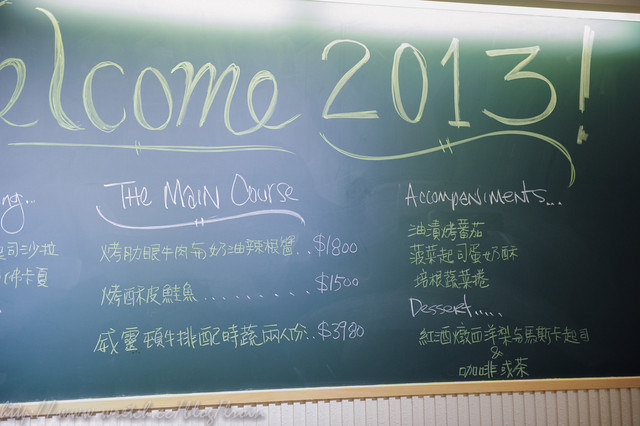 elcome 2013!
ng...
起司沙拉
佛卡夏
The Main Course
烤肋眼牛肉南奶油辣根醬..$1800
烤酥皮鮭魚.........$1500
威靈頓牛排配時蔬兩人份..$3980
Accompaniments...
油漬烤蕃茄
菠菜起司蛋奶酥
培根蔬菜捲
Dessert.....
紅酒燉西洋梨与馬斯卡起司
&
咖啡或茶